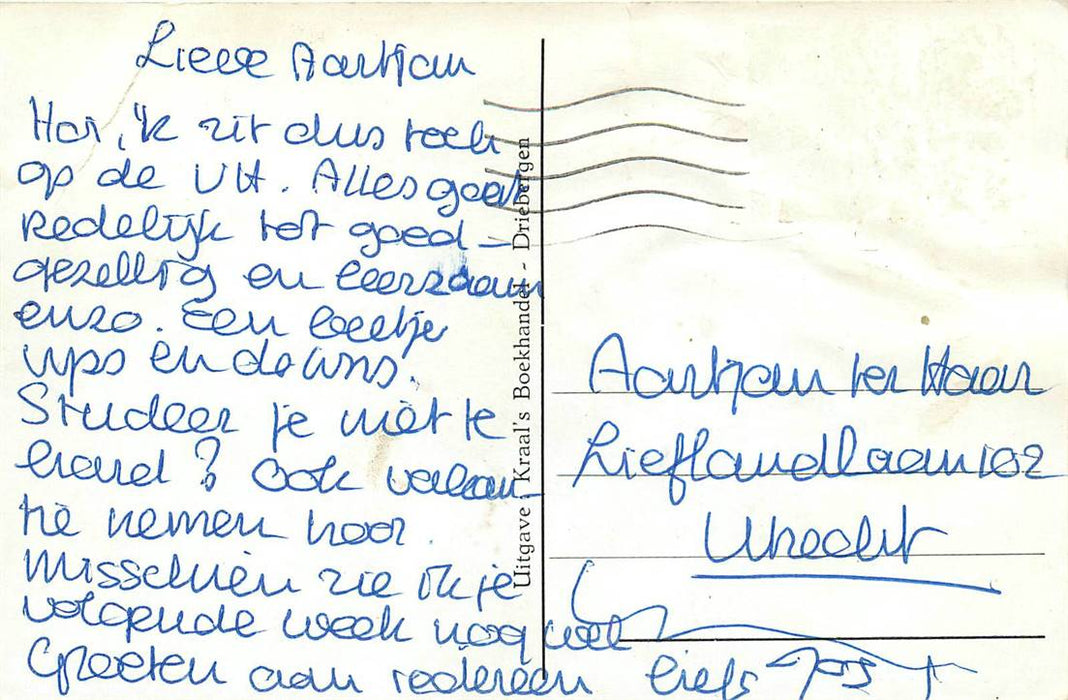 Lieve Aartjan
Hoi, 'k zit dus toch
op de VU. Alles gaat
redelijk tot goed -
gezellig en leerzaam
enzo. Een beetje
ups en downs.
Studeer je niet te
hard? Ook vakan-
tie nemen hoor.
Misschien zie ik je
volgende week nog wel
Groeten aan iedereen liefs Jos
Uitgave: Kraal's Boekhandel - Driebergen
Aartjan ter Haar
Lieflandlaan 102
Utrecht